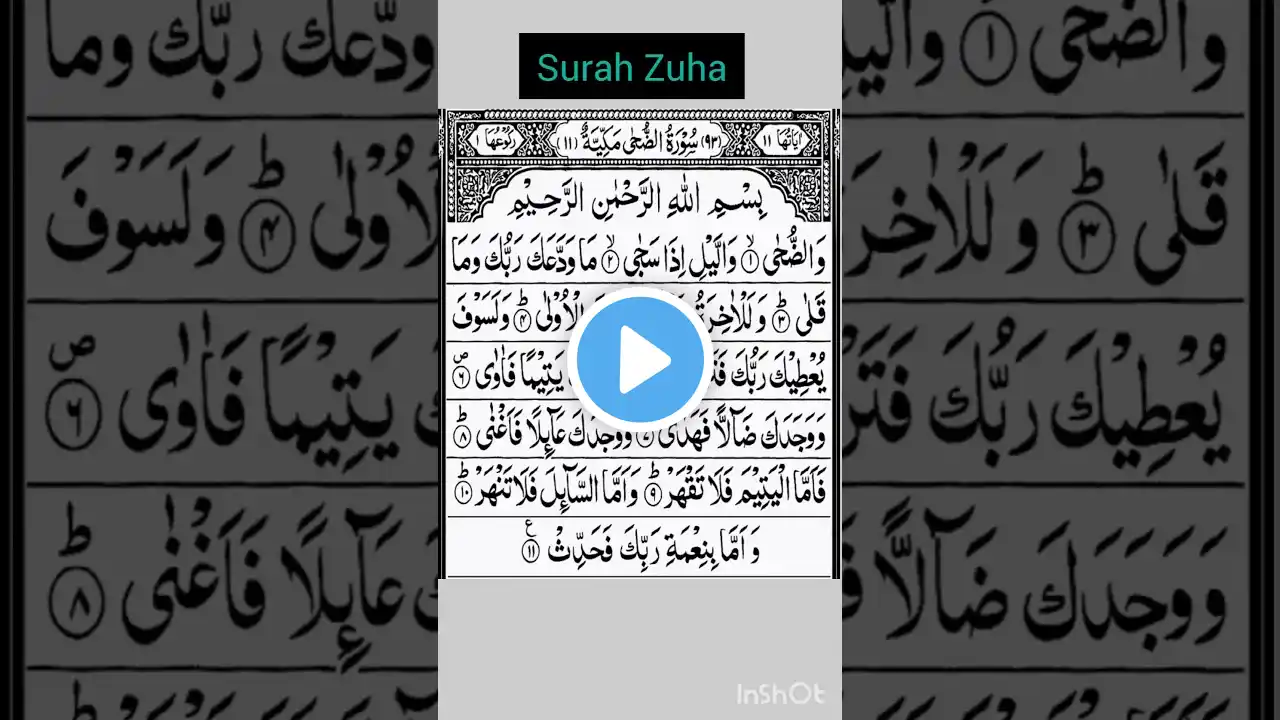 Surah Zuha
اٰیَاتُهَا ١١ (٩٣) سُوْرَةُ الضُّحٰى مَكِّيَّةٌ (١١) رُكُوْعُهَا ١
بِسْمِ اللّٰهِ الرَّحْمٰنِ الرَّحِيْمِ
وَالضُّحٰى ۙ﴿١﴾ وَالَّيْلِ اِذَا سَجٰى ۙ﴿٢﴾ مَا وَدَّعَكَ رَبُّكَ وَمَا
قَلٰى ؕ﴿٣﴾ وَلَلْاٰخِرَةُ الْاُوْلٰى ؕ﴿۴﴾ وَلَسَوْفَ
يُعْطِيْكَ رَبُّكَ يَتِيْمًا فَاٰوٰى ۪﴿۶﴾
وَوَجَدَكَ ضَآلًّا فَهَدٰى وَوَجَدَكَ عَآئِلًا فَاَغْنٰى ؕ﴿٨﴾
فَاَمَّا الْيَتِيْمَ فَلَا تَقْهَرْ ؕ﴿٩﴾ وَاَمَّا السَّآئِلَ فَلَا تَنْهَرْ ؕ﴿١٠﴾
وَاَمَّا بِنِعْمَةِ رَبِّكَ فَحَدِّثْ ﴿١١﴾ ع
InShOt